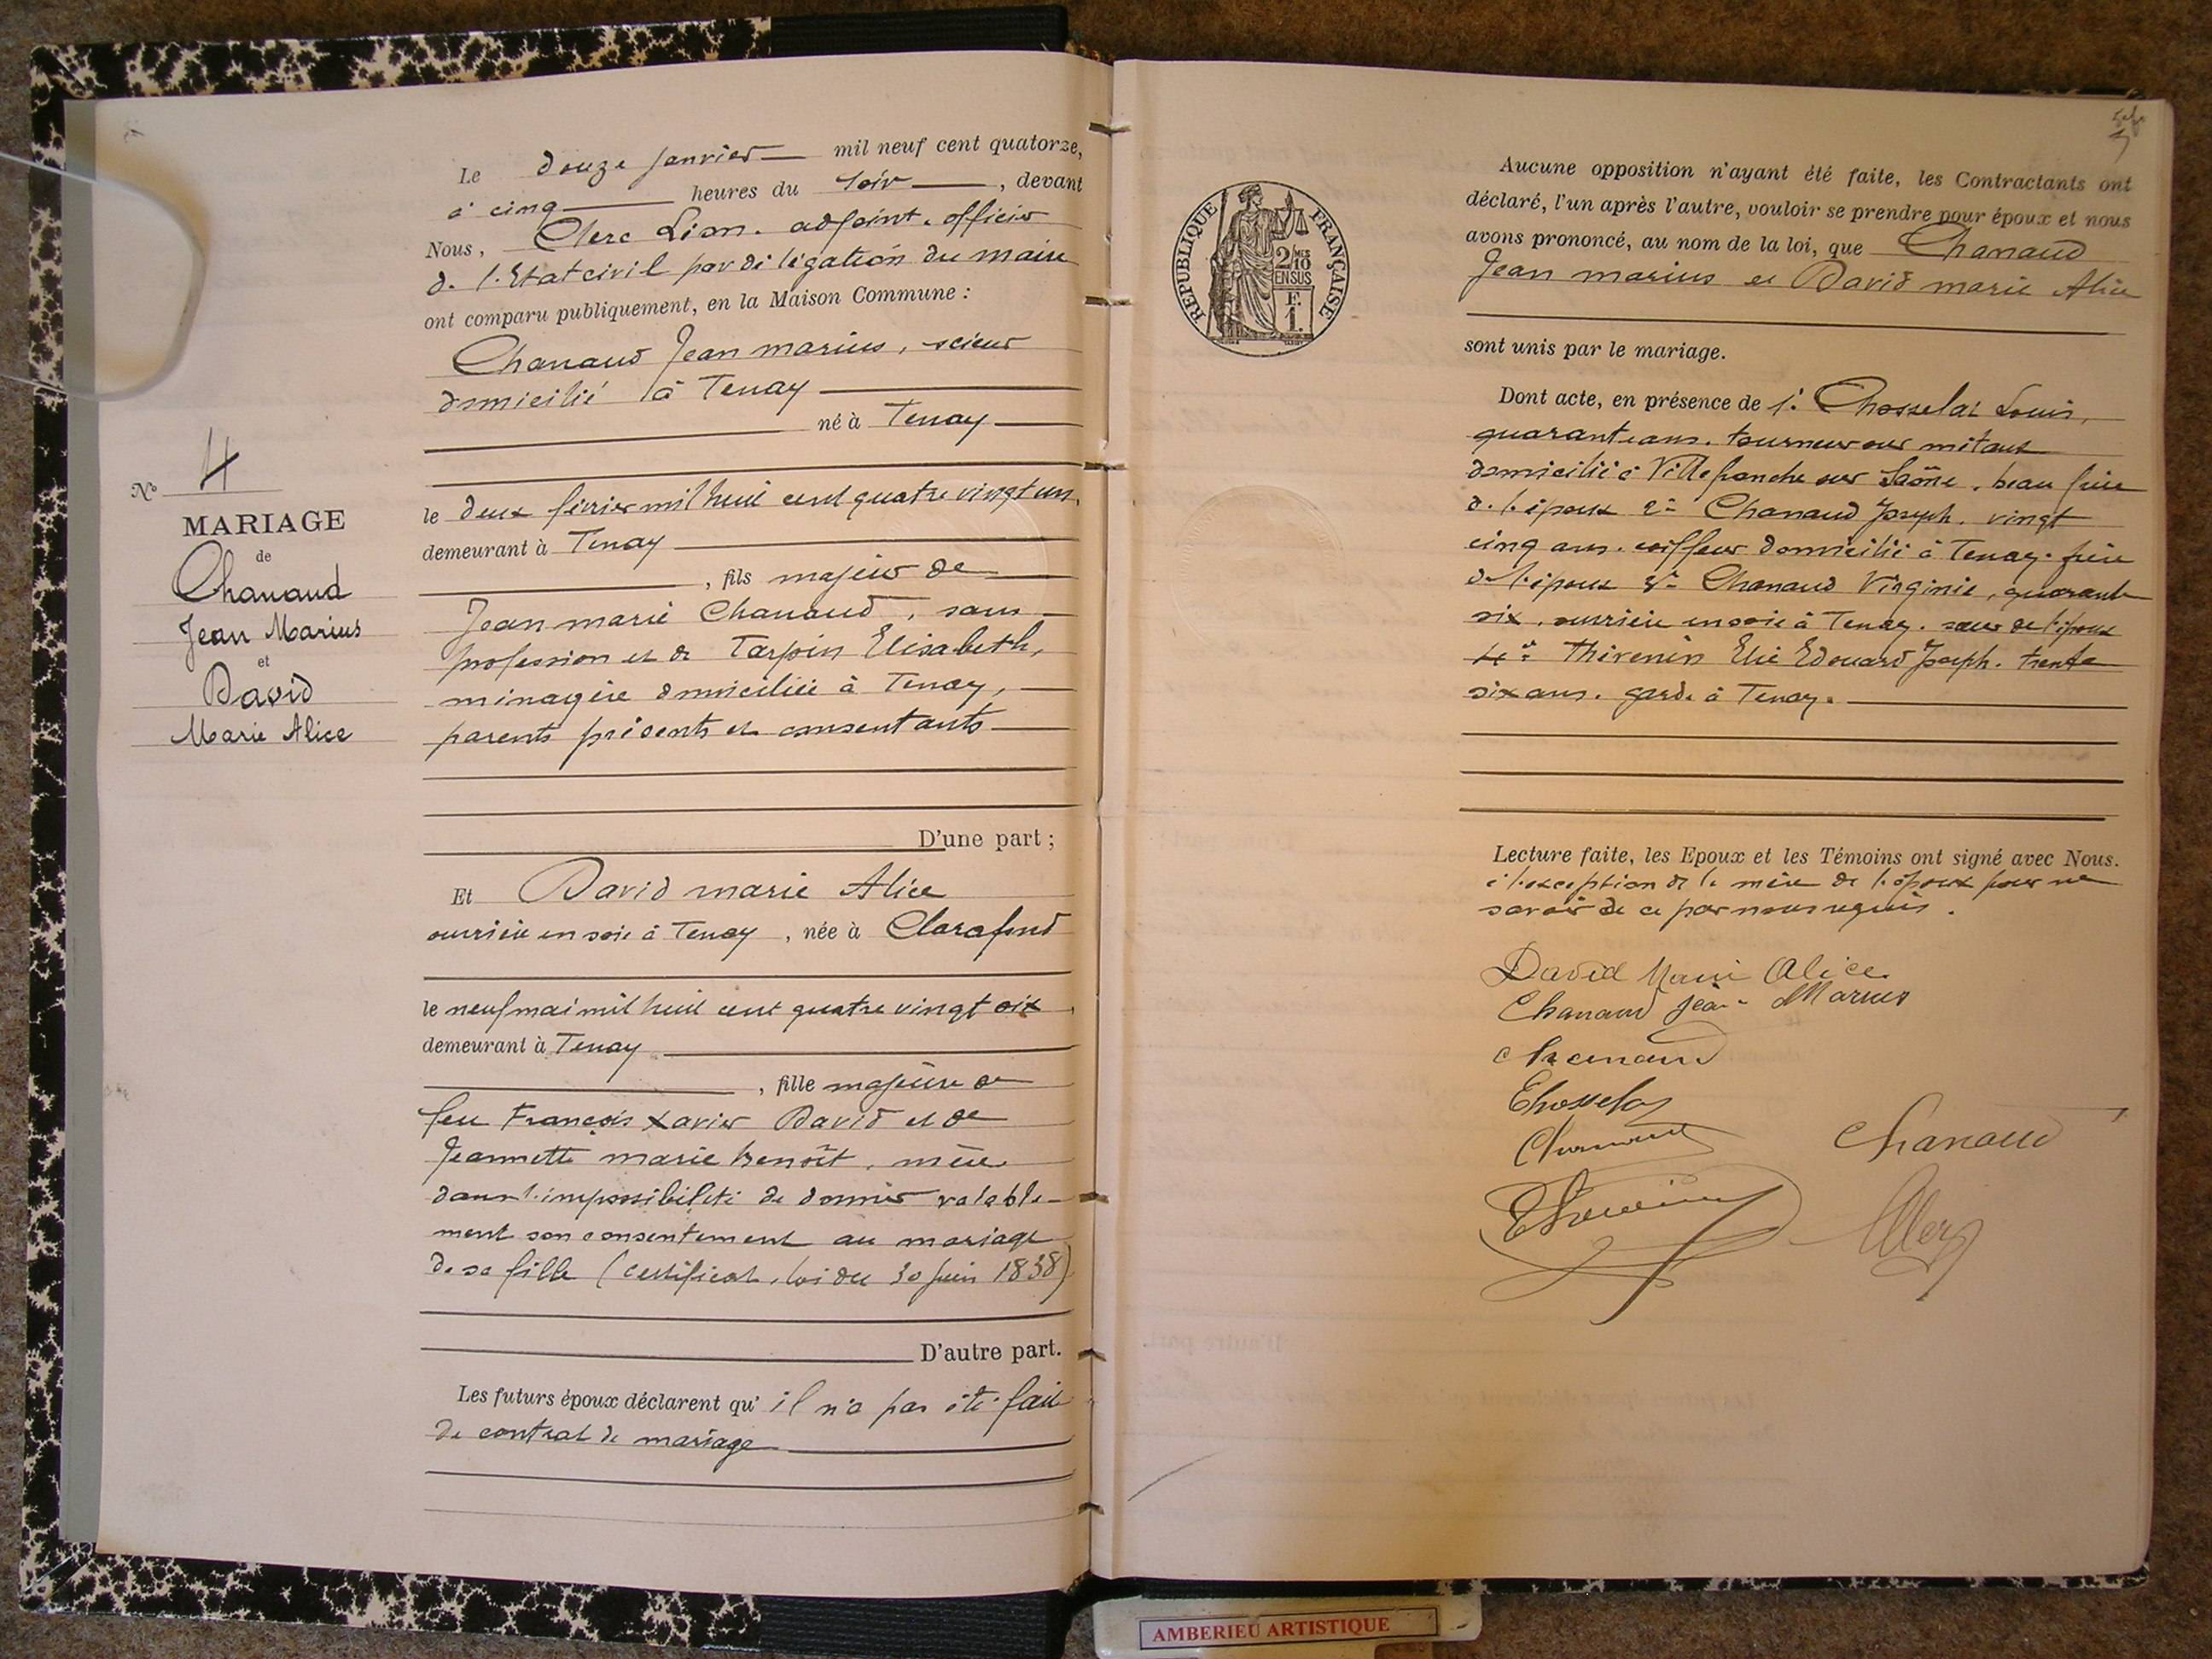 Le douze janvier mil neuf cent quatorze,
à cinq heures du soir, devant
Nous, Clerc Léon. adjoint. officier
de l'Etat civil par délégation du maire
ont comparu publiquement, en la Maison Commune :
Chanaud Jean marius, scieur
domicilié à Tenay
né à Tenay
le deux février mil huit cent quatre vingt un,
demeurant à Tenay
, fils majeur de
Jean marie Chanaud, sans
profession et de Tarpin Elisabeth,
ménagère domiciliée à Tenay,
parents présents et consentants
D'une part ;
Et David marie Alice
ouvrière en soie à Tenay, née à Clarafond
le neuf mai mil huit cent quatre vingt six
demeurant à Tenay
, fille majeure de
feu François Xavier David et de
Jeannette marie benoît, mère
dans l'impossibilité de donner valable-
ment son consentement au mariage
de sa fille (certificat, loi du 30 juin 1838)
D'autre part.
Les futurs époux déclarent qu'il n'a pas été fait
de contrat de mariage
N° 4
MARIAGE
de
Chanaud
Jean Marius
et
David
Marie Alice
REPUBLIQUE FRANÇAISE
2/10
MES
EN SUS
F.
1.
Aucune opposition n'ayant été faite, les Contractants ont
déclaré, l'un après l'autre, vouloir se prendre pour époux et nous
avons prononcé, au nom de la loi, que Chanaud
Jean marius et David marie Alice
sont unis par le mariage.
Dont acte, en présence de 1° Chosselas Louis,
quarante ans. tourneur sur métaux
domicilié à Villefranche sur Saône. beau frère
de l'époux 2° Chanaud Joseph. vingt
cinq ans. coiffeur domicilié à Tenay. frère
de l'époux 3° Chanaud Virginie, quarante
six, ouvrière en soie à Tenay. sœur de l'époux
4° Thévenin Elie Edouard Joseph. trente
six ans. garde à Tenay.
Lecture faite, les Epoux et les Témoins ont signé avec Nous.
à l'exception de la mère de l'époux pour ne
savoir de ce par nous requis.
David Marie Alice
Chanaud Jean Marius
Chanaud
Chosselas
Chanaud
Chanaud
Thévenin
Clerc
AMBERIEU ARTISTIQUE